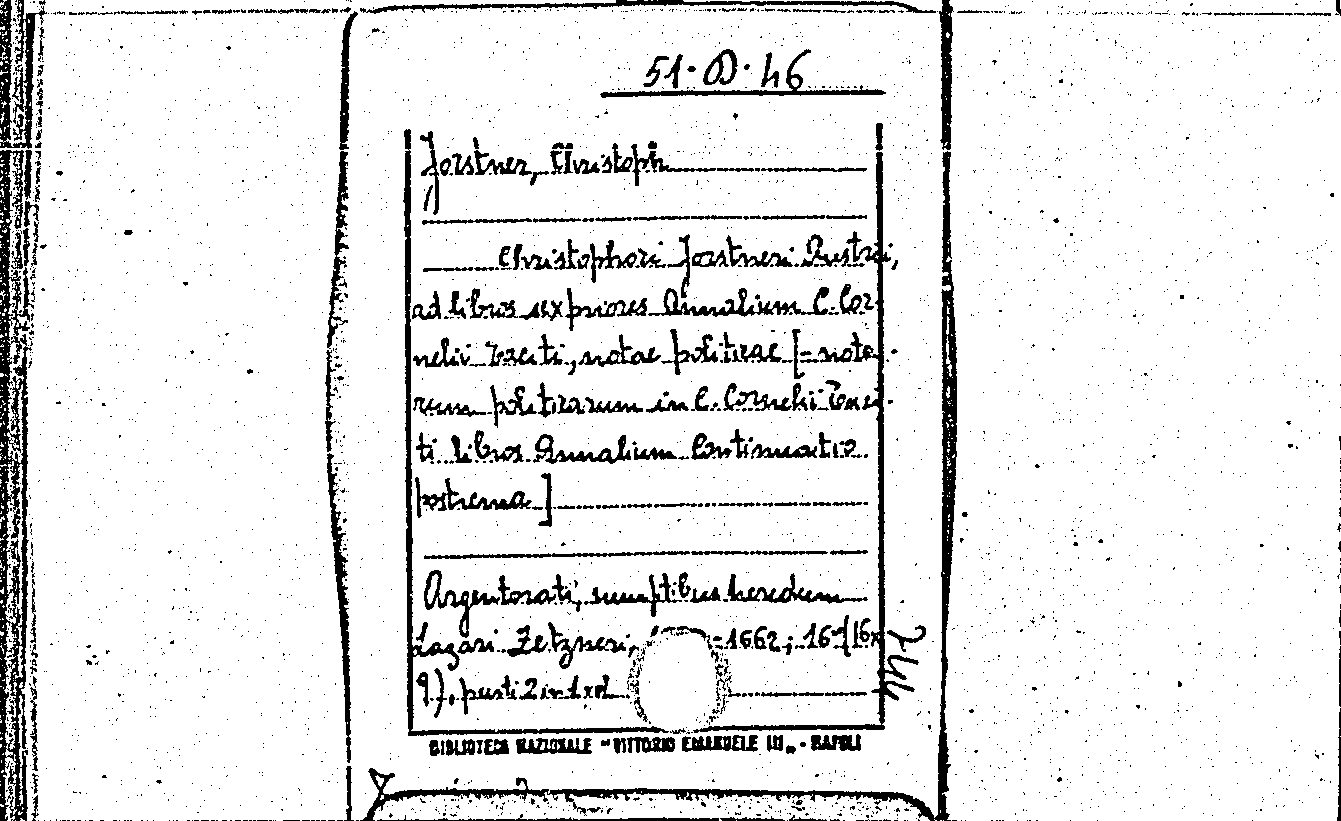 51·D·46
Forstner, Christoph
Christophori Forstneri Austrii,
ad libros sex priores Annalium C. Cor-
nelii Taciti, notae politicae [= nota-
rum politicarum in C. Cornelii Taci-
ti libros Annalium Continuatio
postrema]
Argentorati, sumptibus heredum
Lazari Zetzneri, -1662; 16º (16x
9). parti 2 in 1 vol.
244
BIBLIOTECA NAZIONALE "VITTORIO EMANUELE III„ - NAPOLI